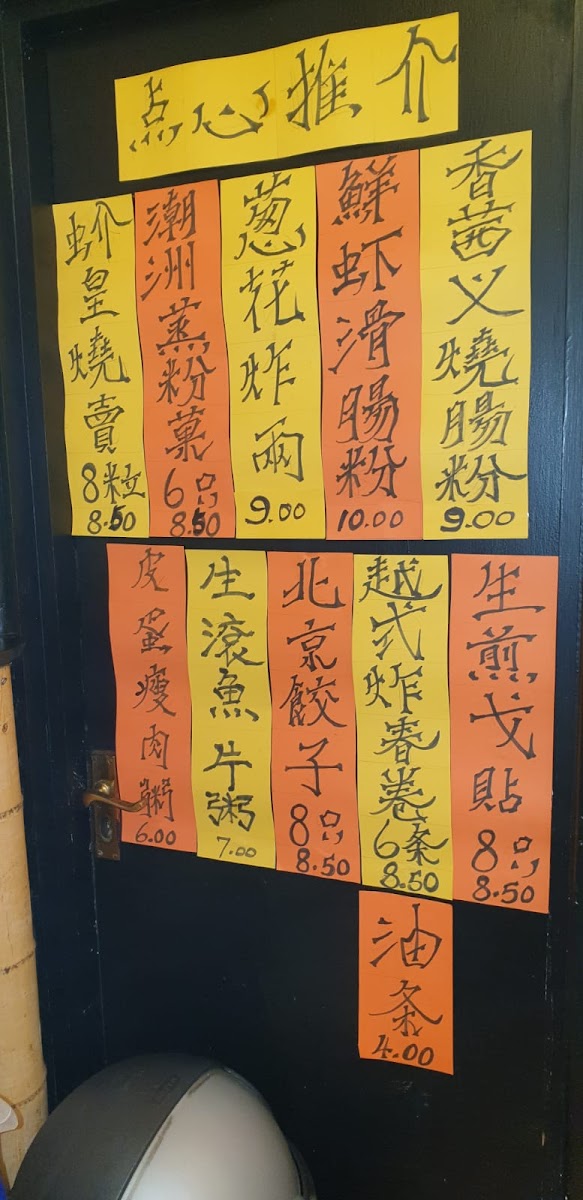 点心推介
蚧皇燒賣8粒
8.50
潮洲蒸粉菓6只
8.50
葱花炸両
9.00
鮮虾滑腸粉
10.00
香茜义燒腸粉
9.00
皮蛋瘦肉粥
6.00
生滾魚片粥
7.00
北京餃子8只
8.50
越式炸春卷6条
8.50
生煎戈貼8只
8.50
油条
4.00